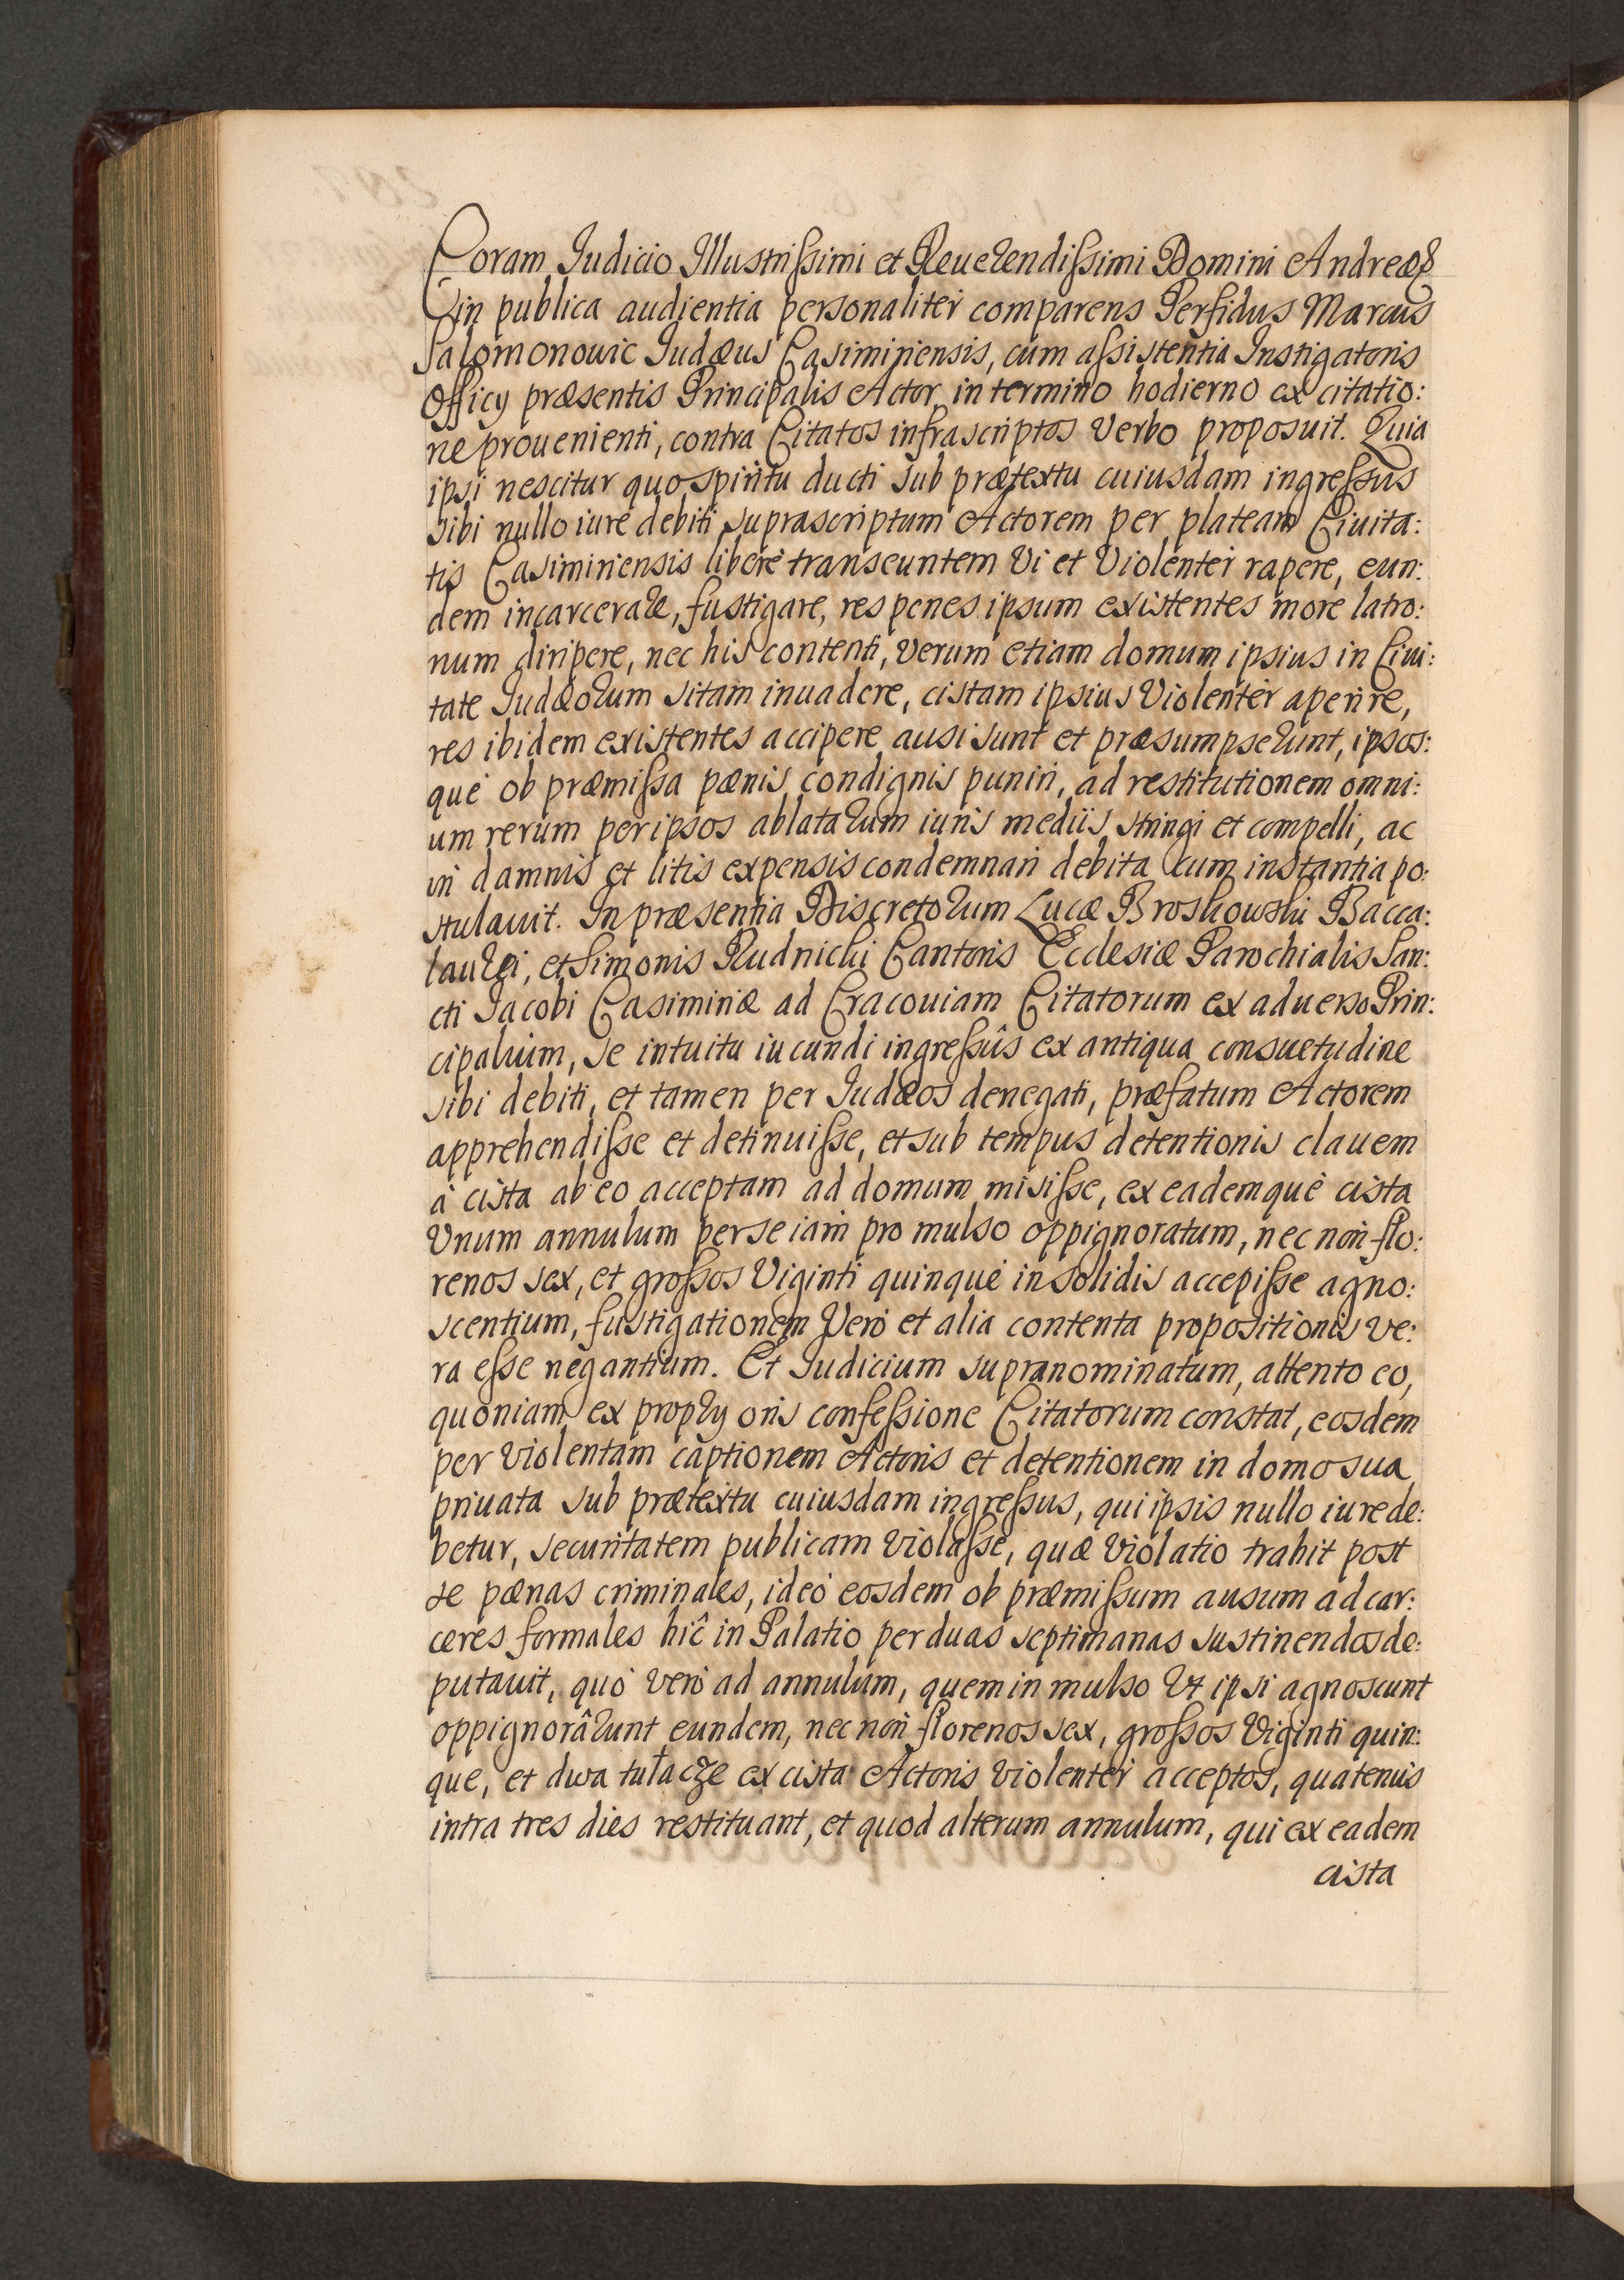 Coram Judicio Illustrissimi et Reuerendissimi Domini Andreæ &
in publica audientia personaliter comparens Perfidus Marcus
Salomonowic Judæus Casimiriensis, cum assistentia Instigatoris
Officÿ præsentis Principalis Actor in termino hodierno ex citatio:
ne prouenienti, contra Citatos infrascriptos verbo proposuit. Quia
ipsi nescitur quo spiritu ducti sub prætextu cuiusdam ingressus
sibi nullo iure debiti suprascriptum Actorem per plateam Ciuita:
tis Casimiriensis liberè transeuntem vi et violenter rapere, eun:
dem incarcerare, fustigare, res penes ipsum existentes more latro:
num diripere, nec his contenti, verum etiam domum ipsius in Ciui:
tate Judæorum sitam inuadere, cistam ipsius violenter aperire,
res ibidem existentes accipere ausi sunt et præsumpserunt, ipsos:
què ob præmissa pænis condignis puniri, ad restitutionem omni:
um rerum per ipsos ablatarum iuris mediis stringi et compelli, ac
in damnis et litis expensis condemnari debita cum instantia po:
stulauit. In præsentia Discretorum Lucæ Broskowski Bacca:
laurei, et Simonis Rudnicki Cantoris Ecclesiæ Parochialis San:
cti Jacobi Casimiriæ ad Cracouiam Citatorum ex aduerso Prin:
cipalium, se intuitu iucundi ingressûs ex antiqua consuetudine
sibi debiti, et tamen per Judæos denegati, præfatum Actorem
apprehendisse et detinuisse, et sub tempus detentionis clauem
à cista ab eo acceptam ad domum misisse, ex eademquè cista
Vnum annulum per se iam pro mulso oppignoratum, nec non flo:
renos sex, et grossos Viginti quinquè in solidis accepisse agno:
scentium, fustigationem verò et alia contenta propositionis ve:
ra esse negantium. Et Judicium supranominatum, attento eo,
quoniam ex proprÿ oris confessione Citatorum constat, eosdem
per violentam captionem Actoris et detentionem in domo sua
priuata sub prætextu cuiusdam ingressus, qui ipsis nullo iure de:
betur, securitatem publicam violasse, quæ violatio trahit post
se pænas criminales, ideò eosdem ob præmissum ausum ad car:
ceres formales hîc in Palatio per duas septimanas sustinendos de:
putauit, quò verò ad annulum, quem in mulso vt ipsi agnoscunt
oppignorârunt eundem, nec non florenos sex, grossos Viginti quin:
que, et dwa tułacze ex cista Actoris violenter acceptos, quatenus
intra tres dies restituant, et quod alterum annulum, qui ex eadem
cista